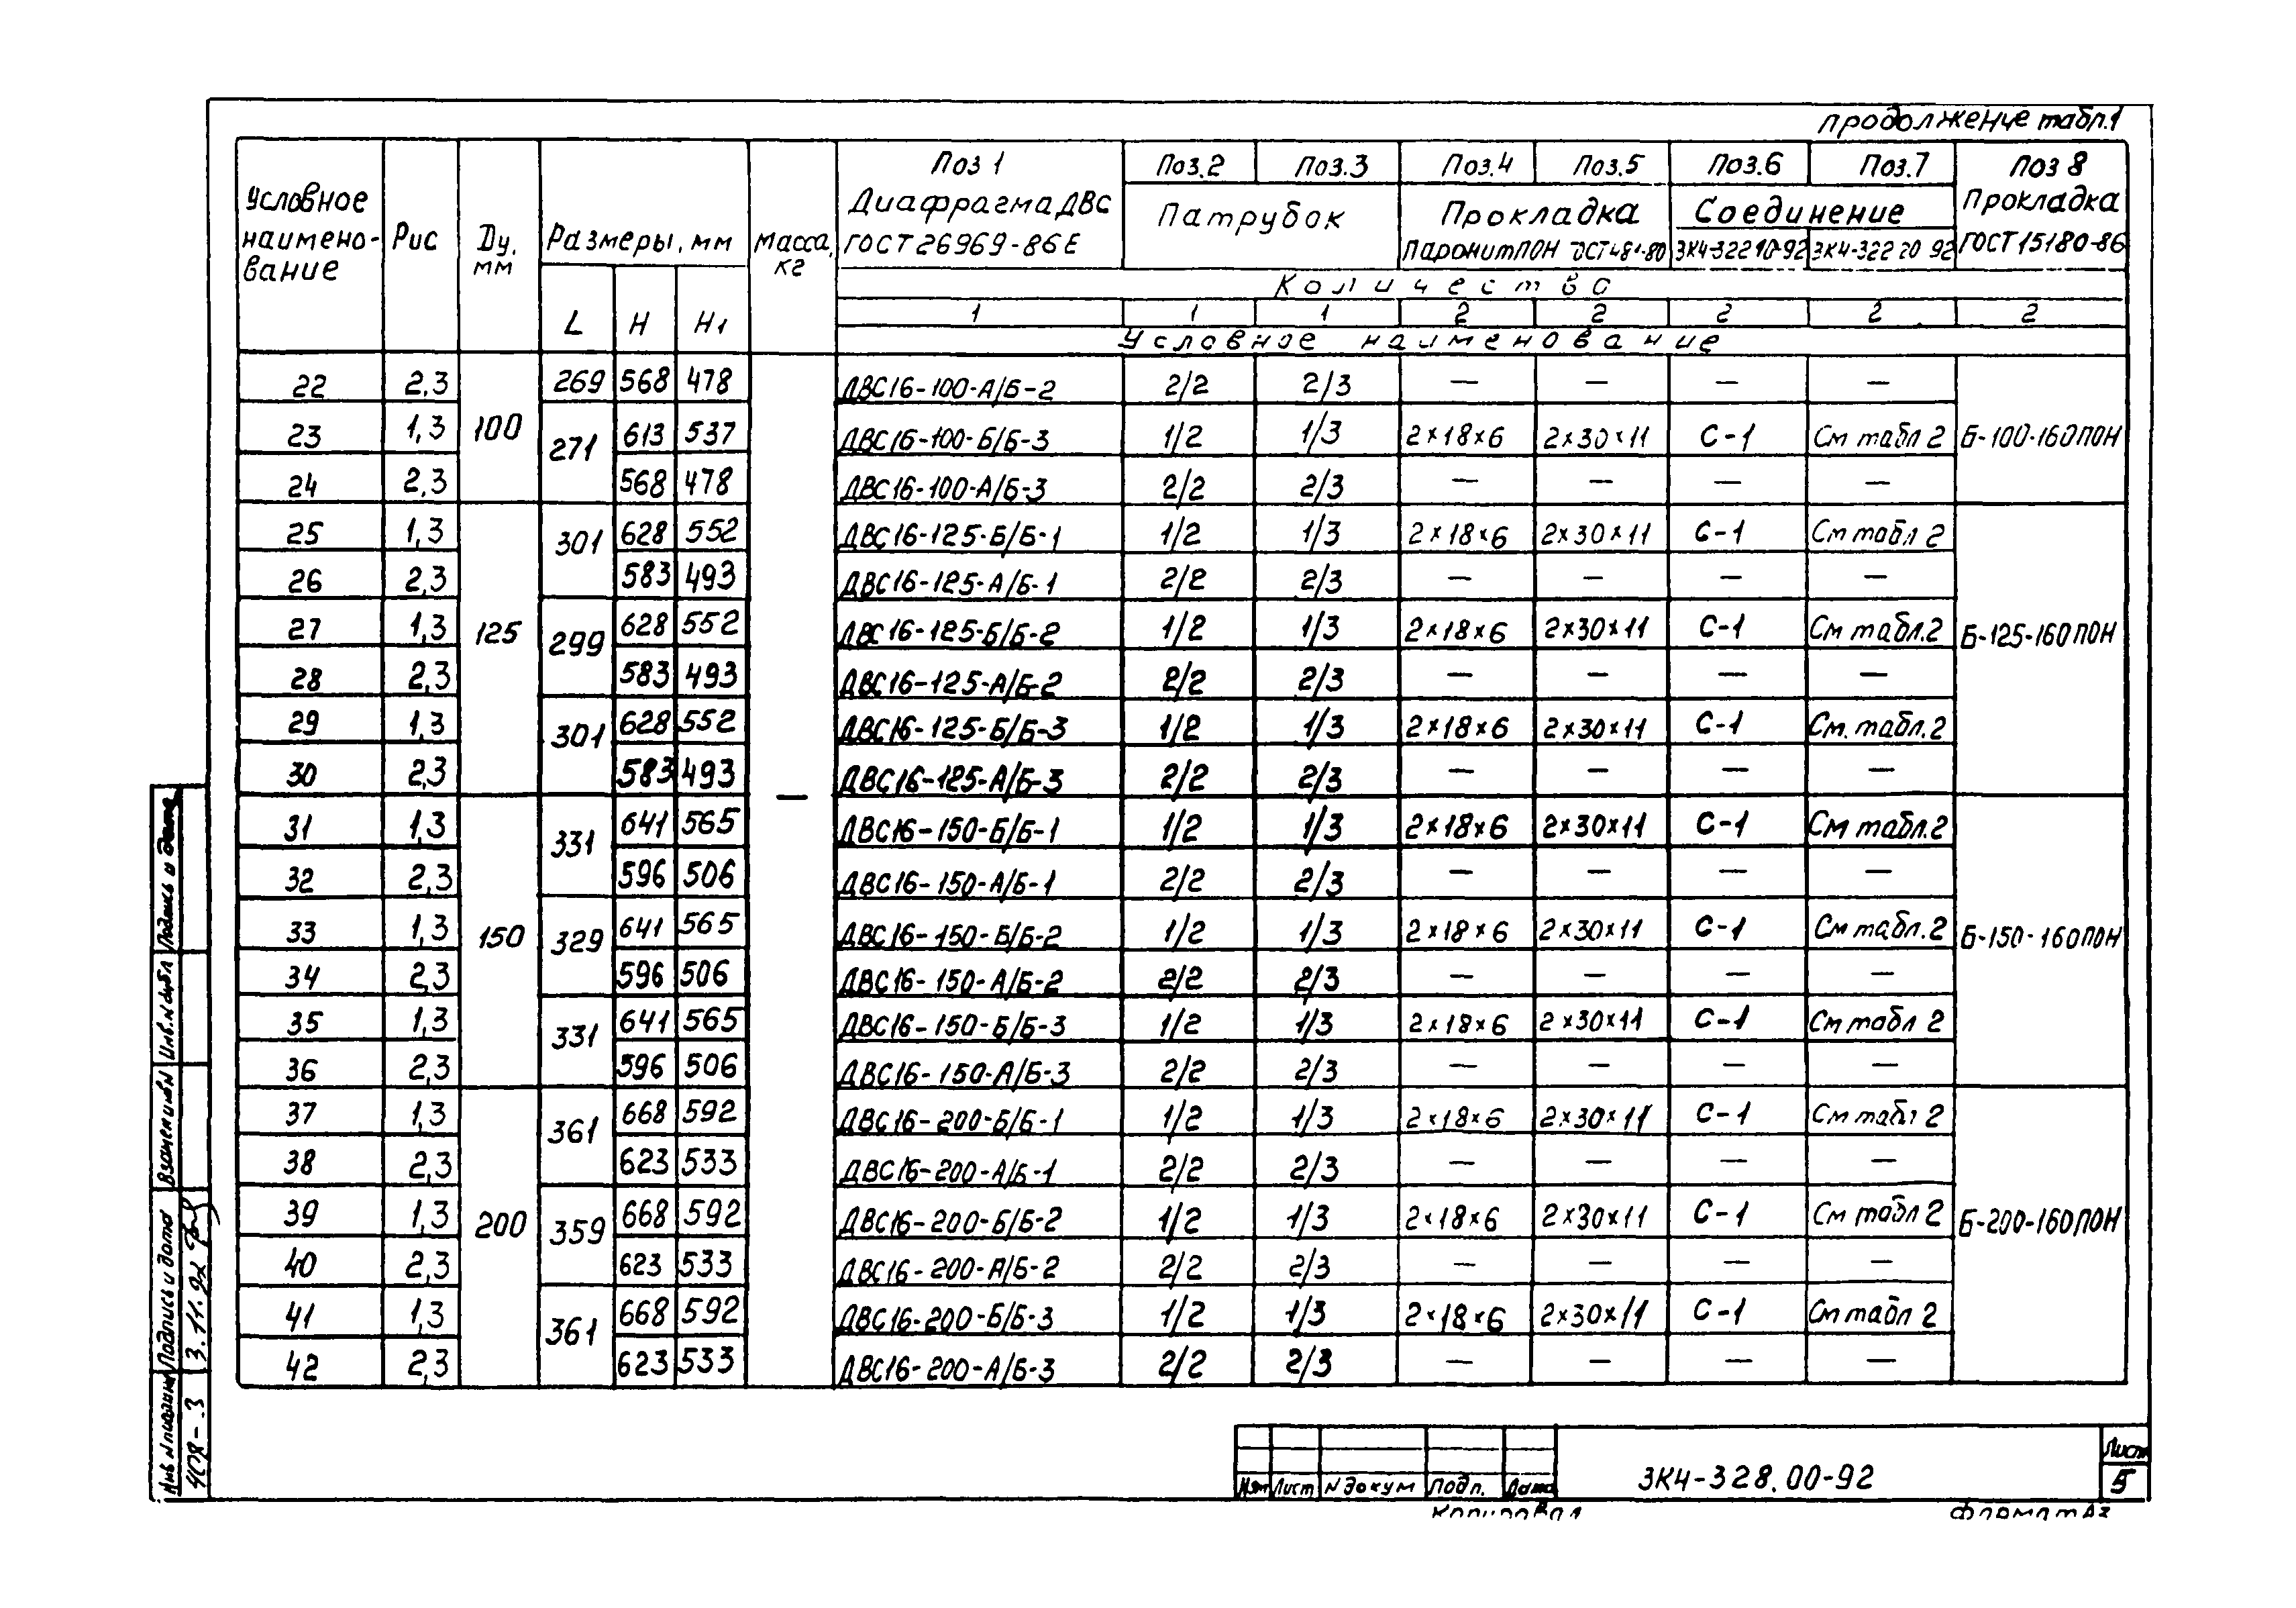 продолжение табл.1
Условное наимено-вание Рис Dу, мм Размеры, мм Масса, кг Поз 1 Поз.2 Поз.3 Поз.4 Поз.5 Поз.6 Поз.7 Поз 8
Диафрагма ДВС ГОСТ 26969-86Е Патрубок Прокладка Паронит ПОН ГОСТ 481-80 Соединение ЗК4-322 10-92 ЗК4-322 20 92 Прокладка ГОСТ 15180-86
Количество
L H H1 1 1 1 2 2 2 2 2
Условное наименование
22 2,3 100 269 568 478 ДВС16-100-А/Б-2 2/2 2/3 — — — —
23 1,3 271 613 537 ДВС16-100-Б/Б-3 1/2 1/3 2×18×6 2×30×11 С-1 См табл 2 Б-100-160ПОН
24 2,3 568 478 ДВС16-100-А/Б-3 2/2 2/3 — — — —
25 1,3 301 628 552 ДВС16-125-Б/Б-1 1/2 1/3 2×18×6 2×30×11 С-1 См табл 2
26 2,3 583 493 ДВС16-125-А/Б-1 2/2 2/3 — — — —
27 1,3 125 299 628 552 ДВС16-125-Б/Б-2 1/2 1/3 2×18×6 2×30×11 С-1 См табл.2 Б-125-160ПОН
28 2,3 583 493 ДВС16-125-А/Б-2 2/2 2/3 — — — —
29 1,3 301 628 552 ДВС16-125-Б/Б-3 1/2 1/3 2×18×6 2×30×11 С-1 См. табл.2
30 2,3 583 493 — ДВС16-125-А/Б-3 2/2 2/3 — — — —
31 1,3 331 641 565 ДВС16-150-Б/Б-1 1/2 1/3 2×18×6 2×30×11 С-1 См табл.2
32 2,3 596 506 ДВС16-150-А/Б-1 2/2 2/3 — — — —
33 1,3 150 329 641 565 ДВС16-150-Б/Б-2 1/2 1/3 2×18×6 2×30×11 С-1 См табл.2 Б-150-160ПОН
34 2,3 596 506 ДВС16-150-А/Б-2 2/2 2/3 — — — —
35 1,3 331 641 565 ДВС16-150-Б/Б-3 1/2 1/3 2×18×6 2×30×11 С-1 См табл 2
36 2,3 596 506 ДВС16-150-А/Б-3 2/2 2/3 — — — —
37 1,3 361 668 592 ДВС16-200-Б/Б-1 1/2 1/3 2×18×6 2×30×11 С-1 См табл 2
38 2,3 623 533 ДВС16-200-А/Б-1 2/2 2/3 — — — —
39 1,3 200 359 668 592 ДВС16-200-Б/Б-2 1/2 1/3 2×18×6 2×30×11 С-1 См табл 2 Б-200-160ПОН
40 2,3 623 533 ДВС16-200-А/Б-2 2/2 2/3 — — — —
41 1,3 361 668 592 ДВС16-200-Б/Б-3 1/2 1/3 2×18×6 2×30×11 С-1 См табл 2
42 2,3 623 533 ДВС16-200-А/Б-3 2/2 2/3 — — — —
Подпись и дата
Инв.N дубл
Взамен инвN
Подпись и дата 3.11.92
Инв N подлин 408-3
Изм Лист N докум Подп. Дата
ЗК4-328.00-92
Лист
5
Копировал Формат А3